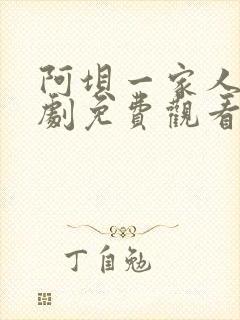 阿坝一家人
劇免費觀看
丁自勉